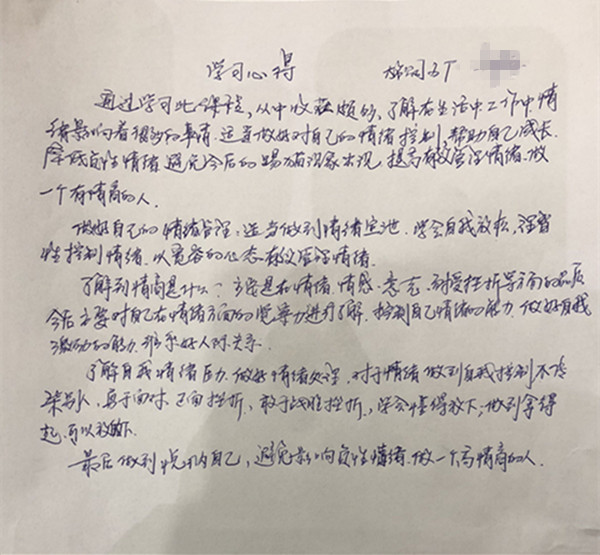 学习心得
通过学习此课程,从中收获颇多,了解在生活中工作中情
绪影响着很多的事情.适当做好对自己的情绪控制,帮助自己成长.
降低负性情绪.避免今后的踢猫现象出现,提高有效管理情绪.做
一个有情商的人.
做好自己的情绪管理,适当做到情绪定池.学会自我放松,理智
性控制情绪.以宽容的心态有效管理情绪.
了解到情商是什么?主要是在情绪.情感.意志.耐受挫折等方面的品质
今后主要对自己在情绪方面的觉察力进行了解.控制自己情绪的能力.做好自我
激励的能力.维系好人际关系.
了解自我情绪压力.做好情绪处理.对于情绪做到自我控制不传
染别人,勇于面对正面挫折,敢于战胜挫折,学会懂得放下,做到拿得
起.可以放下.
最后做到悦纳自己,避免影响负性情绪.做一个高情商的人.